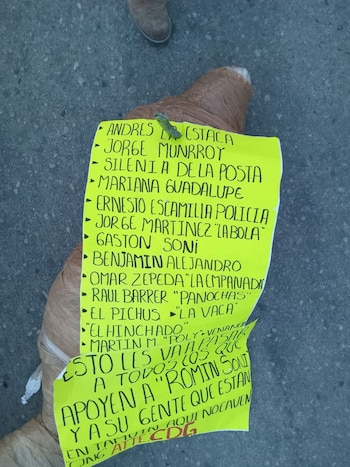 ANDRES ESTACA
JORGE MUNRROY
SILENIA DE LA POSTA
MARIANA GUADALUPE
ERNESTO ESCAMILLA POLICIA
JORGE MARTINEZ "LA BOLA"
GASTON SONI
BENJAMIN ALEJANDRO
OMAR ZEPEDA "LA EMPANADA
RAUL BARRER "PANOCHAS"
EL PICHUS "LA VACA"
"EL HINCHADO"
MARTIN M. "POLY"
ESTO LES VA A PASAR
A TODOS LOS QUE
APOYEN A "ROMIN SONI
Y A SU GENTE QUE ESTAN
AQUI NO CAVEN
CDG